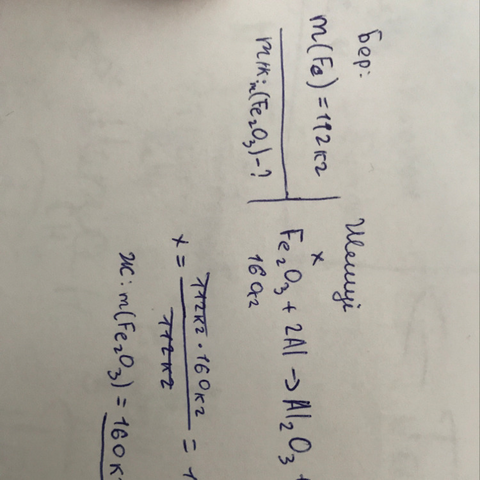 Бер:
m(Fe) = 112кг
m(Fe₂O₃) - ?
Шешуі
x
Fe₂O₃ + 2Al → Al₂O₃ +
160г
x = 112кг · 160кг / 112кг = 1
Ж: m(Fe₂O₃) = 160к